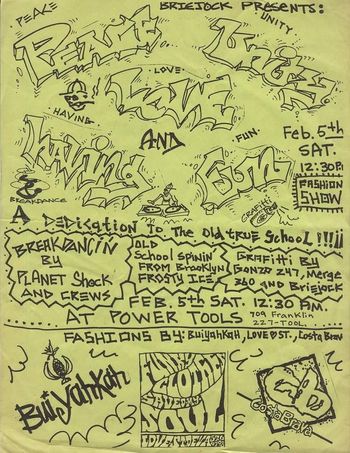 PEACE
BRIEJOCK PRESENTS:
UNITY
PEACE
UNITY
LOVE
LOVE
HAVING
AND
FUN
Feb. 5th
SAT.
12:30P.
HAVING
FUN
FASHION
SHOW
BREAKDANCE
GRAFITI
A DEDIKATION To The Old TRUE School !!!!!
BREAKDANCIN
BY
PLANET Shock
AND CREWS
OLD
School SPININ'
FROM BROOKLYN
FROSTY ICE
GRAFITI BY
GONZO 247, Merge
360 AND BRIEJOCK
FEB. 5th SAT. 12:30 P.M.
AT POWER TOOLS 709 Franklin
227-TOOL.
FASHIONS BY: BuiyahKah, LOVE ST., Costa Brav
BuiYahKah
FUNKY
CLOTHES
SAVED MY
SOUL
LOVE ST.
COSTA BRAVA